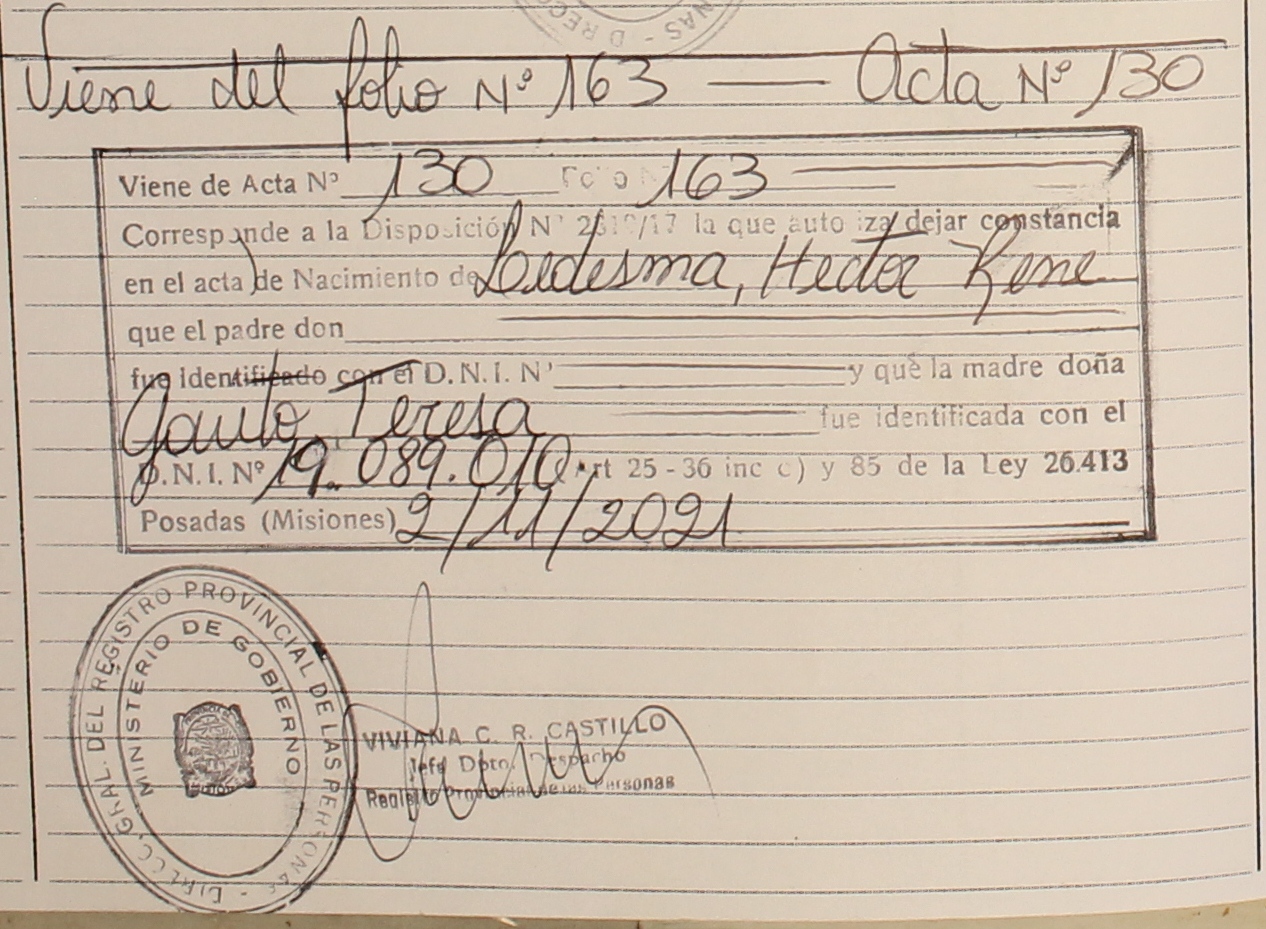 Viene del folio Nº 163 — Acta Nº 130
Viene de Acta Nº 130 Folio N 163
Corresponde a la Disposición Nº /17 la que autoriza dejar constancia
en el acta de Nacimiento de Ledesma, Hector Rene
que el padre don
fue identificado con el D.N.I. Nº y que la madre doña
Gauto Teresa fue identificada con el
D.N.I. Nº 19.089.010 Art 25 - 36 inc c) y 85 de la Ley 26.413
Posadas (Misiones) 2/11/2021
DIRECC. GRAL. DEL REGISTRO PROVINCIAL DE LAS PERSONAS -
MINISTERIO DE GOBIERNO
VIVIANA C. R. CASTILLO
Jefe Dpto. Despacho
Registro Provincial de las Personas